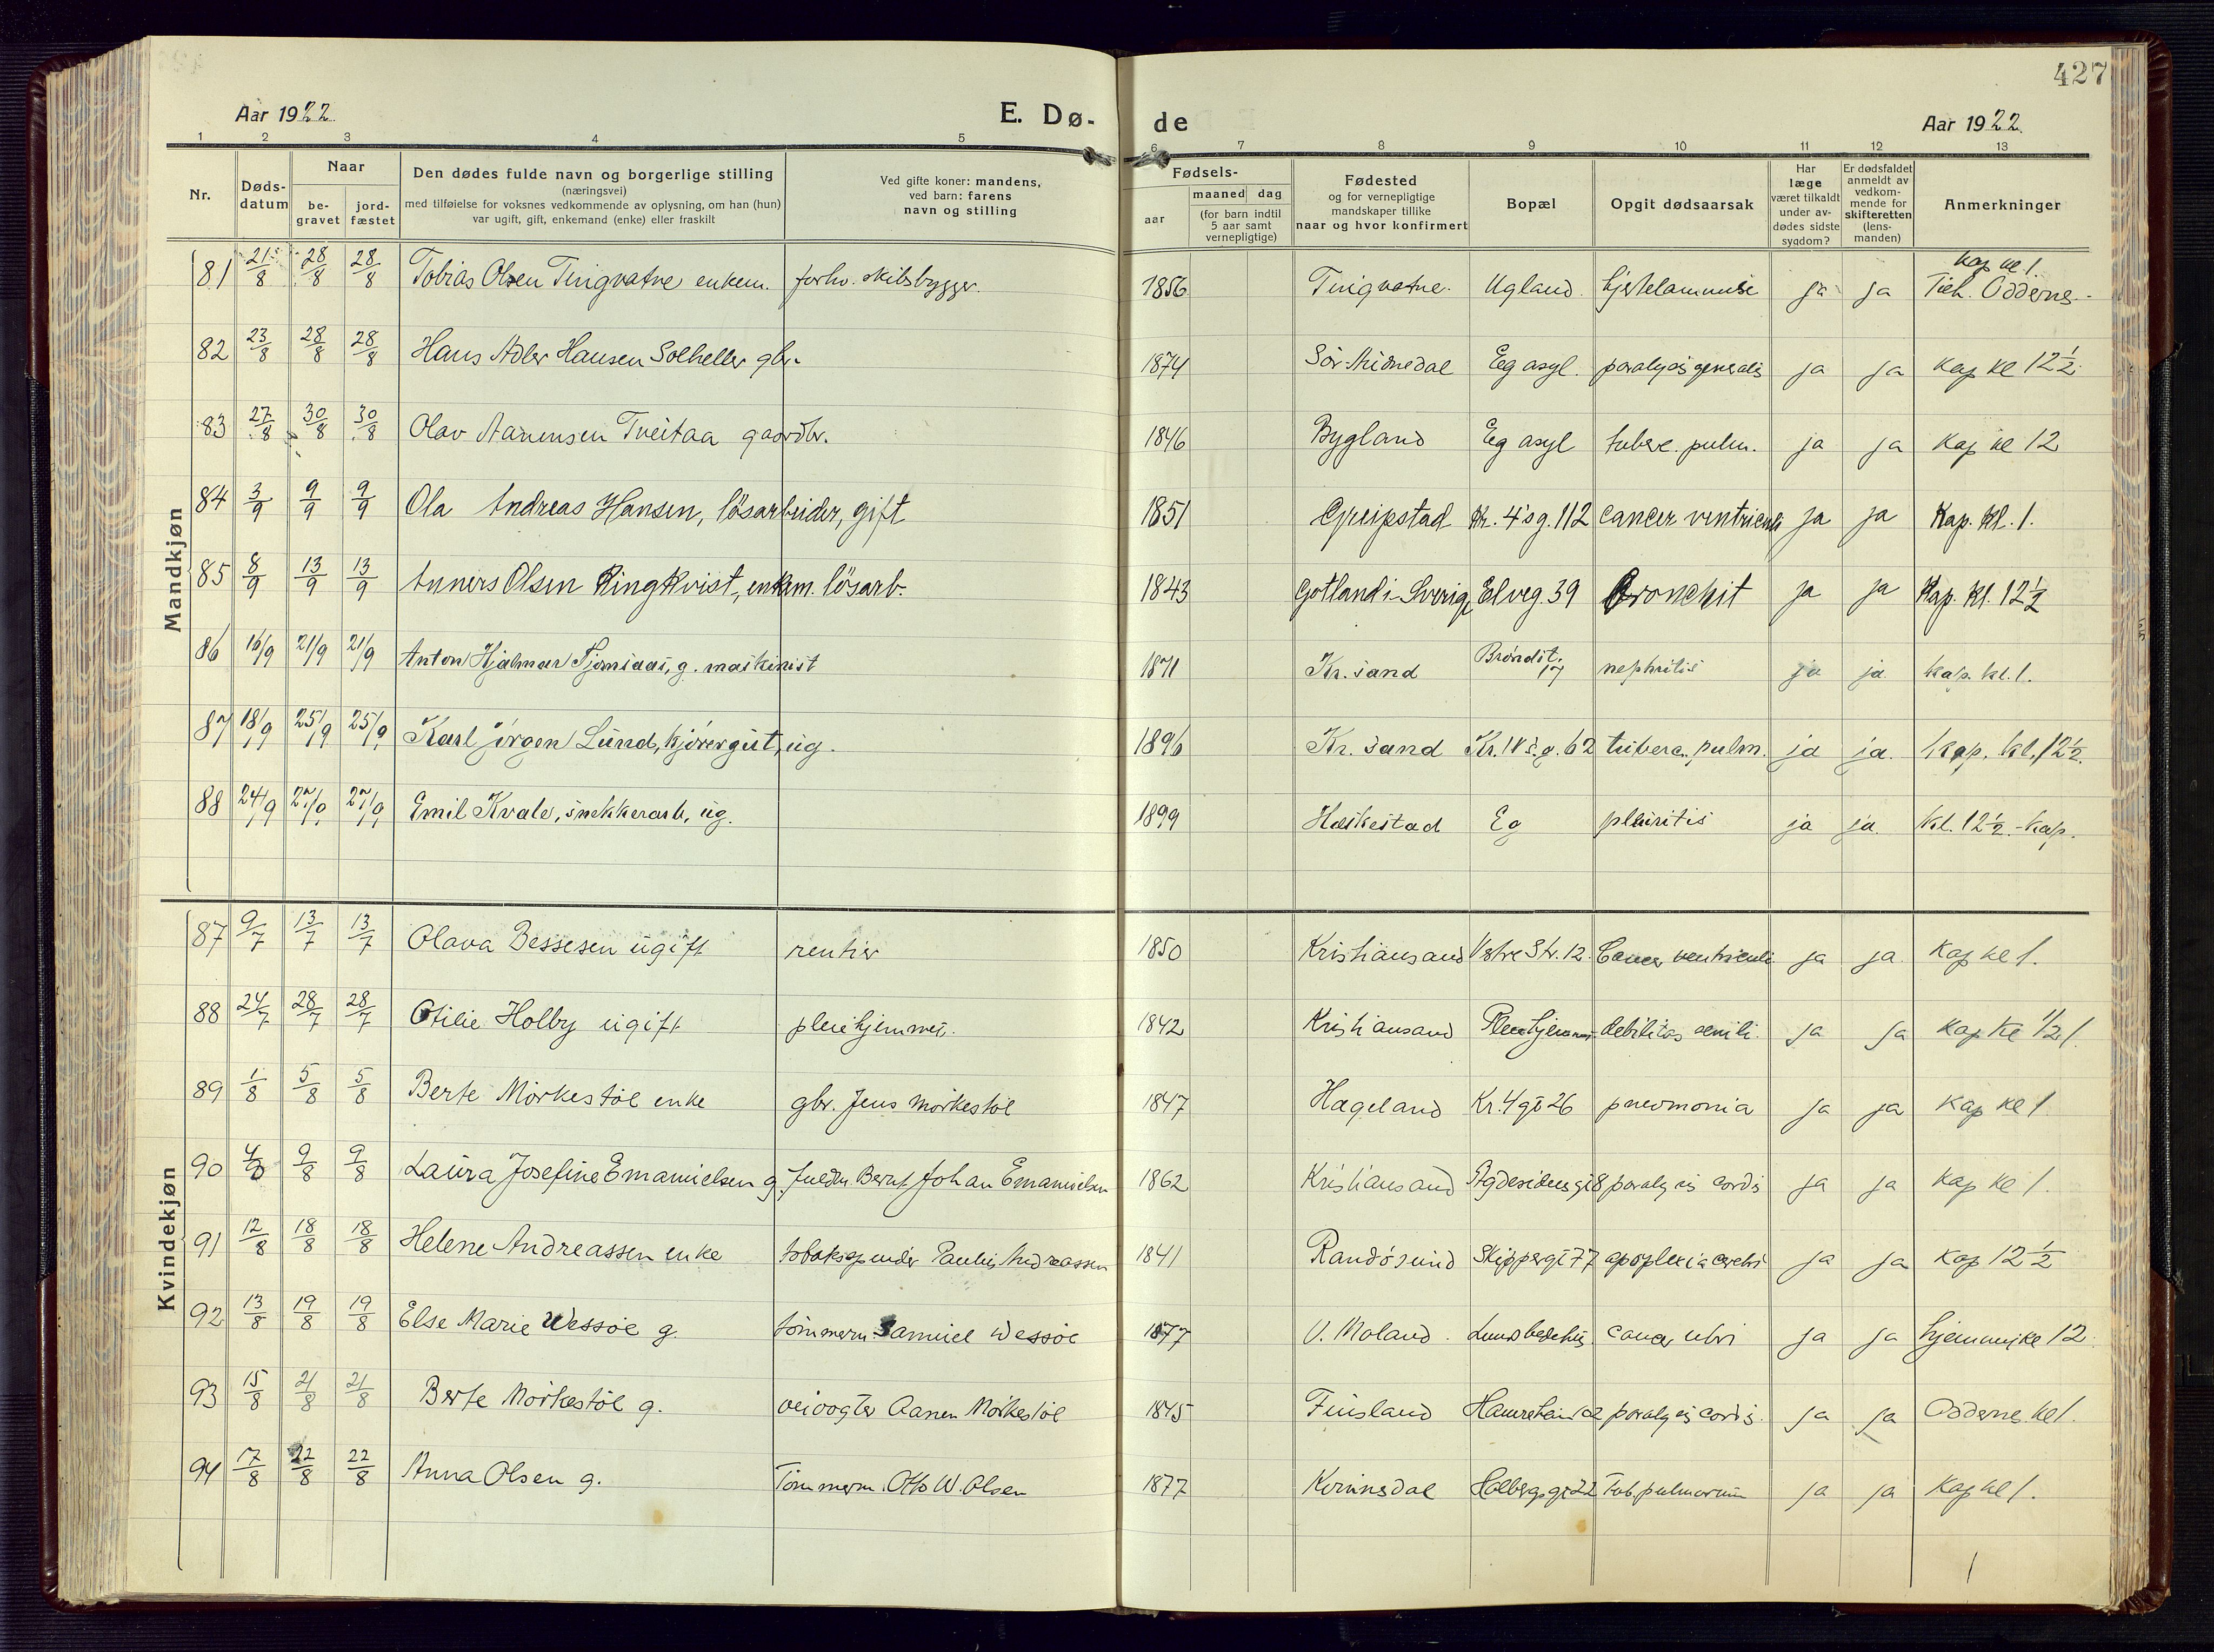 427
Aar 1922
E. Dø-
de
Aar 1922
1 2 3 4 5 6 7 8 9 10 11 12 13
Nr.
Døds-
datum
Naar
be-
gravet
jord-
fæstet
Den dødes fulde navn og borgerlige stilling
(næringsvei)
med tilføielse for voksnes vedkommende av oplysning, om han (hun)
var ugift, gift, enkemand (enke) eller fraskilt
Ved gifte koner: mandens,
ved barn: farens
navn og stilling
Fødsels-
aar
maaned dag
(for barn indtil
5 aar samt
vernepligtige)
Fødested
og for vernepligtige
mandskaper tillike
naar og hvor konfirmert
Bopæl
Opgit dødsaarsak
Har
læge
været tilkaldt
under av-
dødes sidste
sygdom?
Er dødsfaldet
anmeldt av
vedkom-
mende for
skifteretten
(lens-
manden)
Anmerkninger
Mandkjøn
81 21/8 28/8 28/8 Tobias Olsen Tingvatne enkem. forhv. skibsbygger. 1856 Tingvatne. Ugland. hjertelammelse ja ja Kap kl 1. Oddernes.
82 23/8 28/8 28/8 Hans Adler Hansen Solheller gbr. 1874 Sör-Audnedal Eg asyl. paralysis generalis ja ja Kap kl 12½
83 27/8 30/8 30/8 Olav Aanensen Tveitaa gaardbr. 1846 Bygland Eg asyl tuberc. pulm. ja ja Kap kl 12
84 3/9 9/9 9/9 Ola Andreas Hansen, lösarbeider, gift 1851 Greipstad Kr. 4's g. 112 cancer ventriculi ja ja Kap. Kl. 1.
85 8/9 13/9 13/9 Anners Olsen Ringkvist, enkem. lösarb. 1843 Gotland i Sverige Elveg. 39 Bronchit ja ja Kap. Kl. 12½
86 16/9 21/9 21/9 Anton Hjalmar Tjomsaas, g. maskinist 1871 Kr. sand Brøndst. 17 nephritis ja ja Kap. kl. 1.
87 18/9 25/9 25/9 Karl Jörgen Lund, kjörergut, ug. 1896 Kr. sand Kr. IV s. g. 62 tuberc. pulm. ja ja. Kap. kl. 12½.
88 24/9 27/9 27/9 Emil Kvale, snekkerarb, ug. 1899 Hæskestad Eg pleuritis ja ja. Kl. 12½. Kap.
Kvindekjøn
87 9/7 13/7 13/7 Olava Bessesen ugift rentier 1850 Kristiansand Vstre Str. 12. Cancer ventriculi ja ja Kap kl 1.
88 24/7 28/7 28/7 Otilie Holby ugift pleiehjemmet. 1842 Kristiansand Pleiehjemmet debilitas senili. ja ja Kap Kl ½1.
89 1/8 5/8 5/8 Berte Mörkestöl enke gbr. Jens Mörkestöl 1847 Hægeland Kr. 4 gt 26 pneumonia ja ja Kap kl 1
90 4/8 9/8 9/8 Laura Josefine Emanuelsen g. fuldm. Bernt Johan Emanuelsen 1862 Kristiansand Agdesidens gt 8 paralysis cordis ja ja Kap kl 1.
91 12/8 18/8 18/8 Helene Andreassen enke tobakspinder Paulus Andreassen 1841 Randösund Skippergt 77 apoplexia cerebri ja ja Kap 12½
92 13/8 19/8 19/8 Else Marie Wessöe g. tömmerm. Samuel Wessöe 1877 V. Moland. cancer ubri ja ja hjemmet kl 12.
93 15/8 21/8 21/8 Berte Mörkestöl g. veivogter Aanen Mörkestöl 1845 Finsland paralysis cordis. ja ja Oddernes kl 1.
94 17/8 22/8 22/8 Anna Olsen g. Tömmerm. Otto W. Olsen 1877 Kvinesdal Holbergsgt 22 Tub. pulmorum ja ja Kap kl 1.